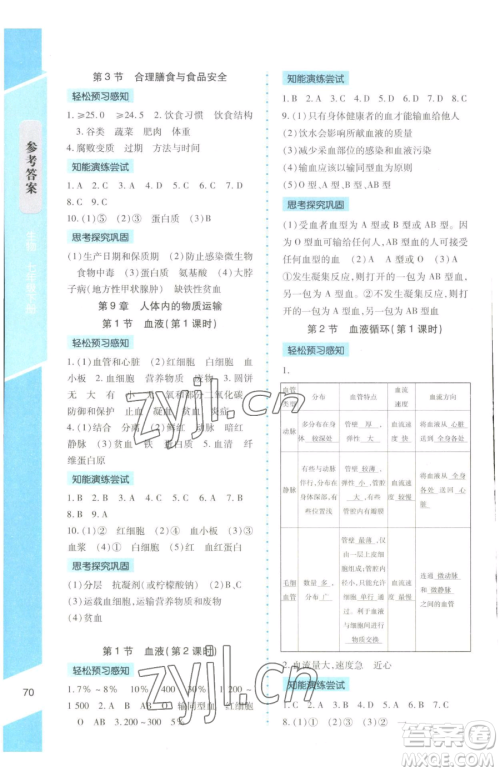 参考答案
生物 七年级下册
第3节 合理膳食与食品安全
轻松预习感知
1. ≥25.0 ≥24.5 2. 饮食习惯 饮食结构
3. 谷类 蔬菜 肥肉 体重
4. 腐败变质 过期 方法与时间
知能演练尝试
1. A 2. C 3. D 4. D 5. B 6. D 7. D
8. C 9. C
10. (1)⑤ (2)A ③ 蛋白质 (3)④
思考探究巩固
(1)生产日期和保质期 (2)防止感染微生物
食物中毒 (3)蛋白质 小肠 氨基酸 (4)大脖
子病(地方性甲状腺肿) 缺铁性贫血
第9章 人体内的物质运输
第1节 血液(第1课时)
轻松预习感知
1. (1)血管和心脏 (2)红细胞 白细胞
2. (1)血细胞 营养物质 废物 3. 圆饼
无 大 有 小 不规则 无
4. (1)结合 分离 (2)鲜红 动脉 暗红
静脉 (3)贫血 铁 蛋白质 5. 血清 纤
维蛋白原
知能演练尝试
1. B 2. B 3. C 4. A 5. D 6. A 7. D
8. A 9. A
10. (1)① (2)① 红细胞 (3)④ 血小板 (4)③
血浆 (5)② 白细胞 (6)① 血红蛋白
思考探究巩固
(1)分层 抗凝剂(或柠檬酸钠) (2)白细胞
(3)运载血细胞、运输营养物质和废物
(4)贫血
第1节 血液(第2课时)
轻松预习感知
1. 7%~8% 10% 400 30% 1 200~
1 500 2. A B AB O A B AB
O AB 3. 200~300 5%
知能演练尝试
1. B 2. A 3. C 4. D 5. A 6. A 7. C
8. D
9. (1)只有身体健康者的血才能输给其他人
(2)防止水分子大量进入红细胞
(3)减少采血部位的感染和血液污染
(4)输血应以输同型血为原则
(5)O型 O型、A型、B型、AB型
思考探究巩固
(1)受血者血型为O型或A型或B型或
AB型 (2)直接输入同型血 (3)O型的血
可大量输给任何人 (4)不发生凝集反应
(5)发生凝集反应,执行③ (6)不发生凝集
反应,执行④ (7)A型、B型、AB型
第2节 血液循环(第1课时)
轻松预习感知
1.
血管类型 分布 血管特点 血流速度 血流方向
动脉 多分布在身体较深处 管壁厚、弹性大 血流速度快 将血液从心脏送至全身各处
静脉 有些与动脉并行,分布在身体深部,有些分布在身体浅层,有的内表面有瓣膜 管壁较薄、弹性小、管腔大 血流速度较慢 将血液从全身各处送入心脏
毛细血管 数量多、分布广 管壁最薄,仅由一层上皮细胞构成;管腔最细,只允许红细胞单行通过,有利于血液和组织细胞之间的物质交换 血流速度最慢 连通微动脉和微静脉之间的血管
2. 流血量大、速度急 近心
知能演练尝试
1. B 2. C 3. A 4. C 5. C 6. A 7. C
70
zyjl.cn
答案圈